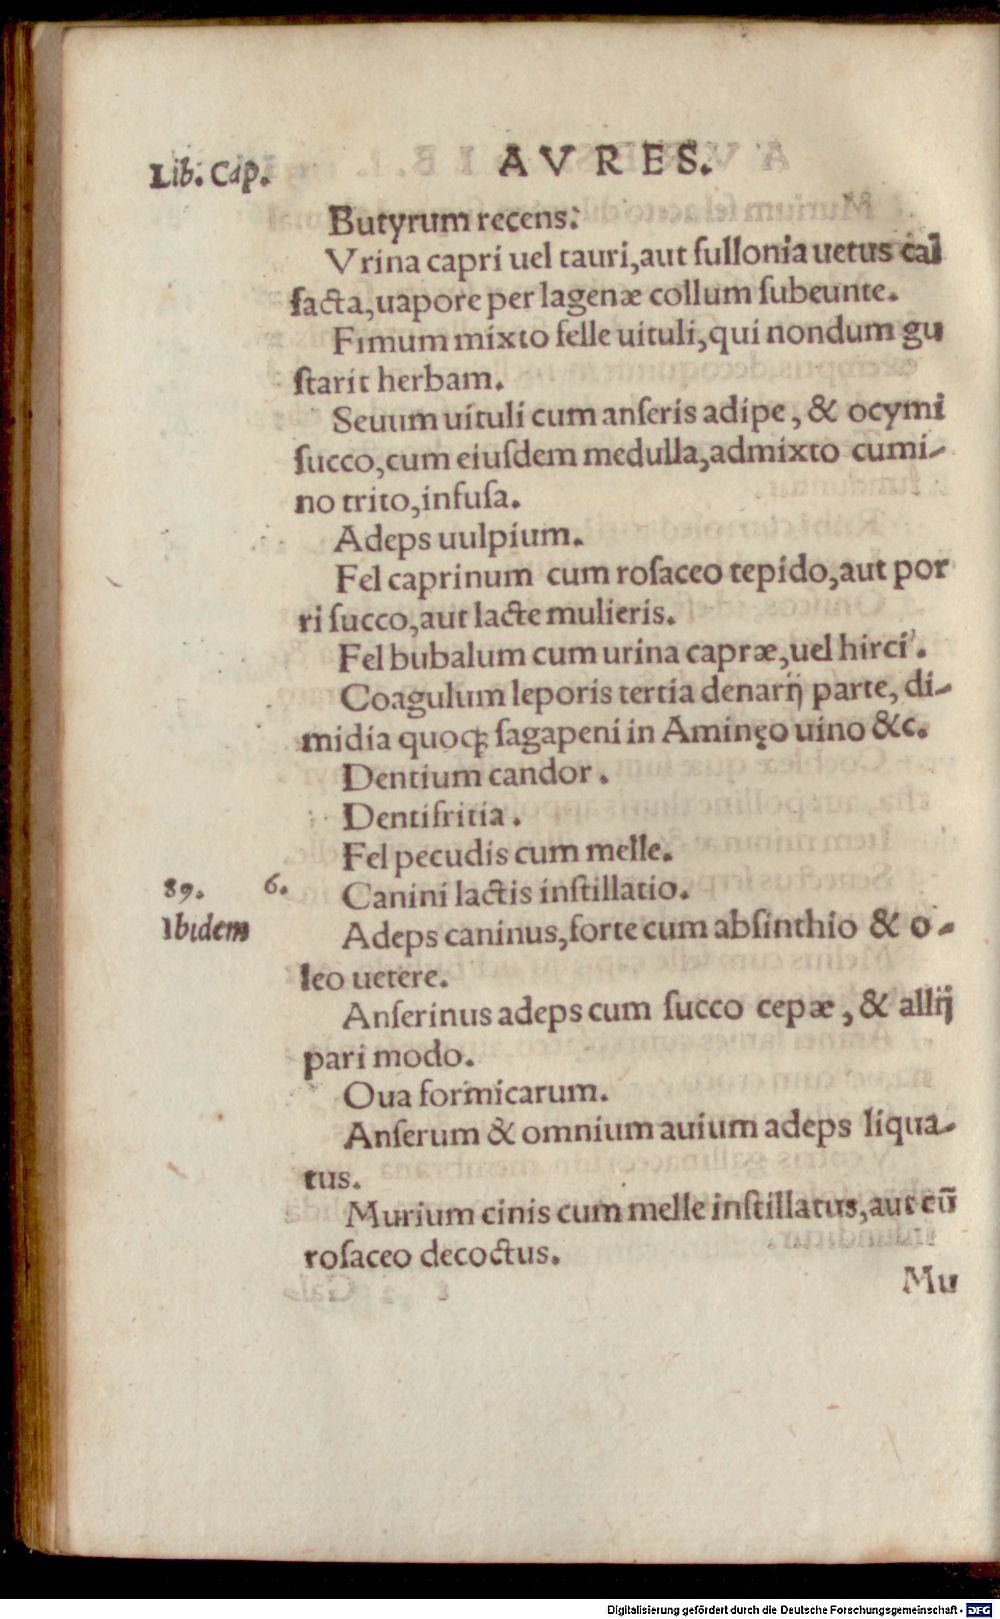 AVRES.
Lib. Cap.
Butyrum recens.
Vrina capri uel tauri,aut fullonia uetus cal
facta,uapore per lagenæ collum ſubeunte.
Fimum mixto felle uituli,qui nondum gu
ſtarit herbam.
Seuum uituli cum anſeris adipe, & ocymi
ſucco,cum eiuſdem medulla,admixto cumi-
no trito,infuſa.
Adeps uulpium.
Fel caprinum cum roſaceo tepido,aut por
ri ſucco,aut lacte mulieris.
Fel bubalum cum urina capræ,uel hirci.
Coagulum leporis tertia denarij parte, di-
midia quoq; ſagapeni in Aminęo uino &c.
Dentium candor.
Dentifritia.
Fel pecudis cum melle.
89. 6. Canini lactis inſtillatio.
Ibidem Adeps caninus,forte cum abſinthio & o-
leo uetere.
Anſerinus adeps cum ſucco cepæ, & allij
pari modo.
Oua formicarum.
Anſerum & omnium auium adeps liqua-
tus.
Murium cinis cum melle inſtillatus,aut cū
roſaceo decoctus.
Mu
Digitalisierung gefördert durch die Deutsche Forschungsgemeinschaft - DFG